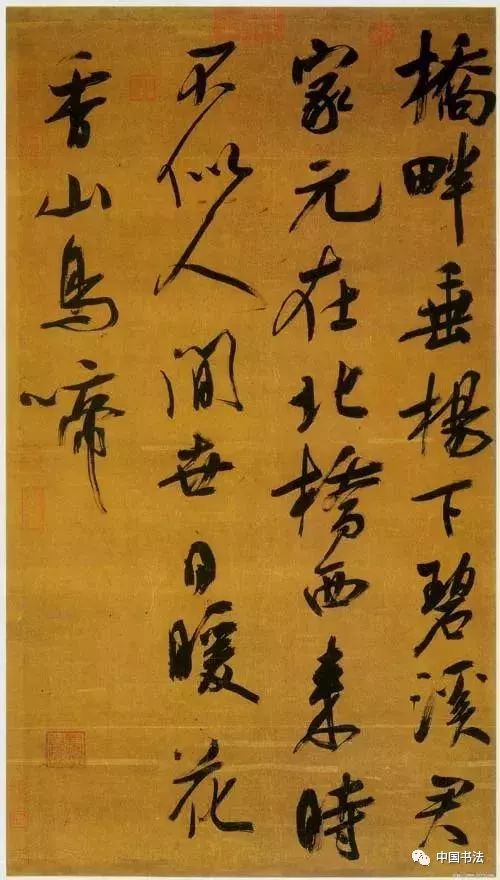 橋畔垂楊下碧溪君
家元在北橋西來時
不似人間世日暖花
香山鳥啼
中国书法